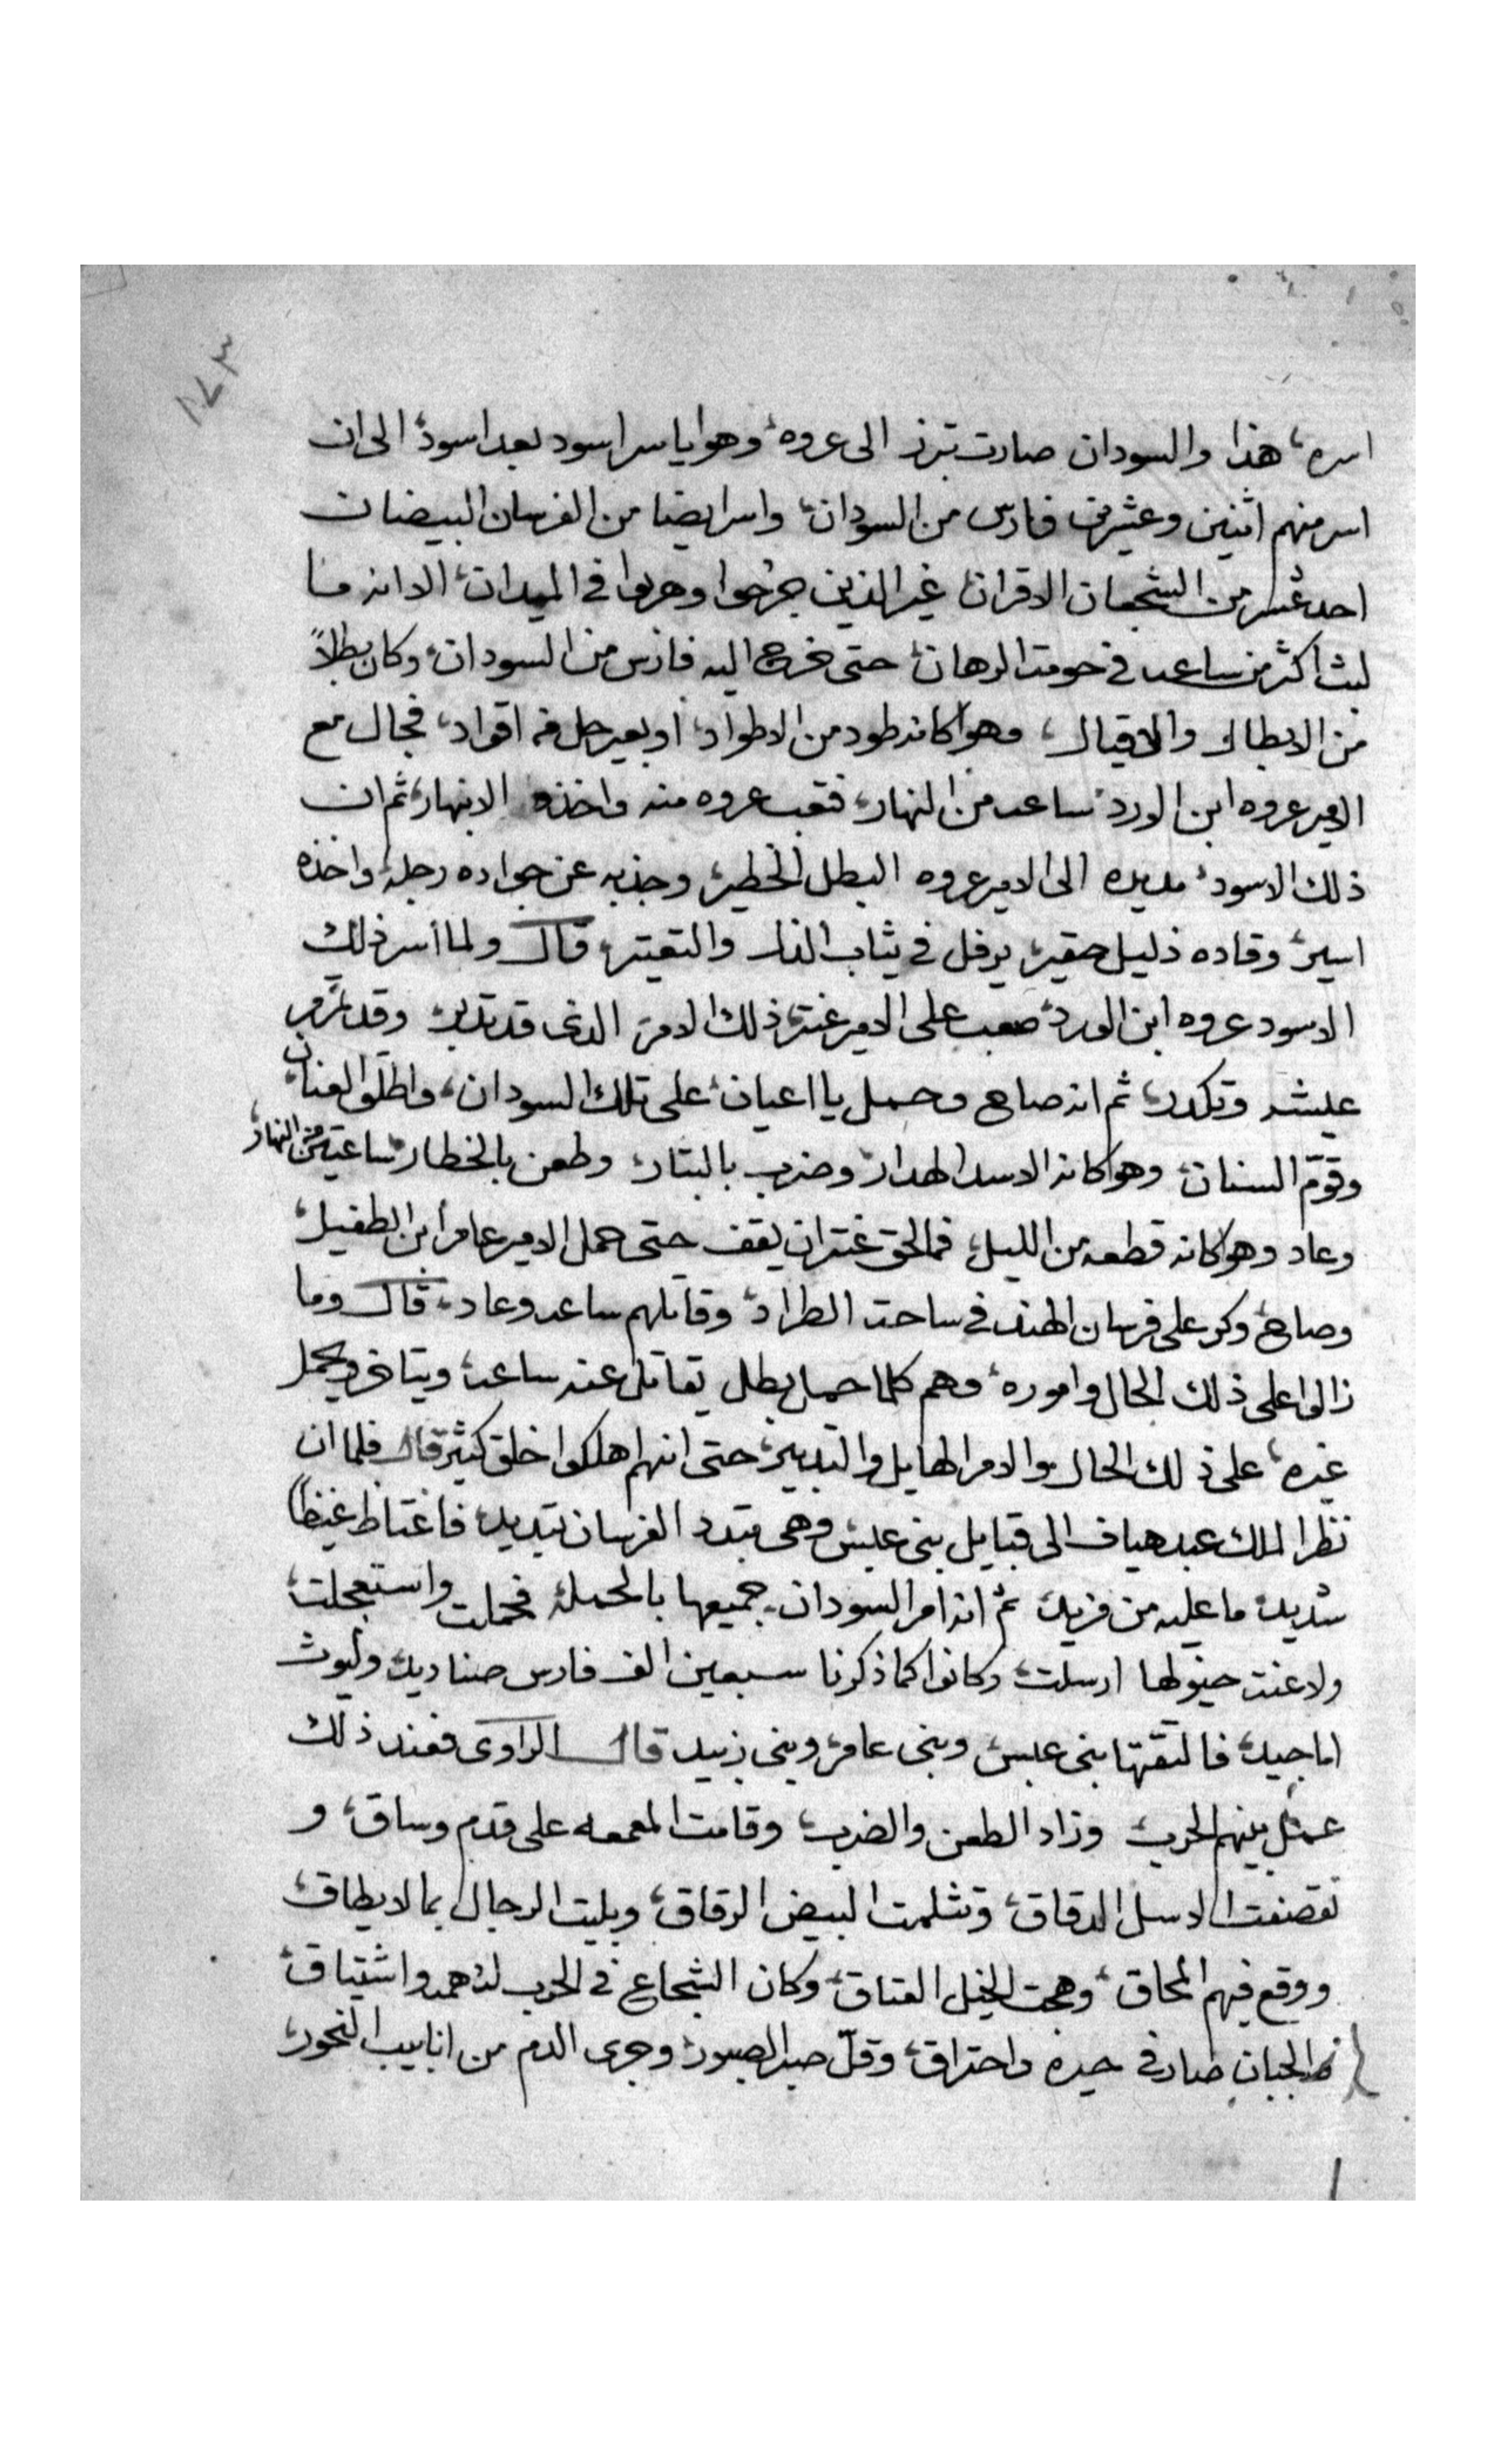 ١٤٣
اسره، هذا والسودان صارت تبرز الى عروه، وهو ياسر اسود بعد اسود، الى ان
اسر منهم اثنين وعشرين فارس من السودان، واسر ايضا من الفرسان البيضان
احد عشر من الشجعان الاقران، غير الذين جرحوا وهربوا في الميدان، الا انه ما
لبث اكثر من ساعه في حومة الرهان، حتى خرج اليه فارس من السودان، وكان بطلاً
من الابطال والاقيال، وهو كانه طود من الاطواد، او بعير حل من اقواد، فجال مع
الامير عروه ابن الورد، ساعه من النهار، فتعب عروه منه واخذه الانبهار، ثم ان
ذلك الاسود، مد يده الى الامير عروه البطل الخطير، وجذبه عن جواده رجله، واخذه
اسير، وقاده ذليل حقير، يرفل في ثياب الذل والتقتير، قال ولما أسر ذلك
الاسود عروه ابن الورد، صعب على الامير عنتر، ذلك الامر الذي قد تدبر، وقد تمرمر
عيشه وتكدر، ثم انه صاح وحمل يا اعيان، على تلك السودان، واطلق العنان،
وقوّم السنان، وهو كانه الاسد الهدار، وضرب بالبتار، وطعن بالخطار، ساعتين من النهار،
وعاد وهو كانه قطعه من الليل، فما لحق عنتر ان يقف حتى حمل الامير عامر ابن الطفيل،
وصاح، وكر على فرسان الهند في ساحة الطراد، وقاتلهم ساعه وعاد، قال وما
زالوا على ذلك الحال واموره، وهم كلما حمل بطل يقاتل عنه ساعه، ويتاخر ويحمل
غيره، على ذلك الحال والامر الهايل والتدبير، حتى انهم اهلكوا خلق كثير، قال فلما ان
نظر الملك عبد هياف الى قبايل بني عبس وهي تبدد الفرسان تبديد، فاغتاظ غيظاً
شديد، ما عليه من مزيد، ثم انه امر السودان جميعها بالحمله، فحملت واستعجلت،
ولاعنة خيولها ارسلت، وكانوا كما ذكرنا سبعين الف فارس صناديد، وليوث
اماجيد، فالتقتها بني عبس، وبني عامر، وبني زبيد قال الراوى فعند ذلك
عمل بينهم الحرب، وزاد الطعن والضرب، وقامت المعمعه على قدم وساق، و
تقصفت الاسل الدقاق، وتثلمت البيض الرقاق، وبليت الرجال بما لا يطاق،
ووقع فيهم المحاق، وهجت الخيل العتاق، وكان الشجاع في الحرب له همه واشتياق،
والجبان صار في حيره واحتراق، وقلّ صبر الصبور، وجرى الدم من انابيب النحور،